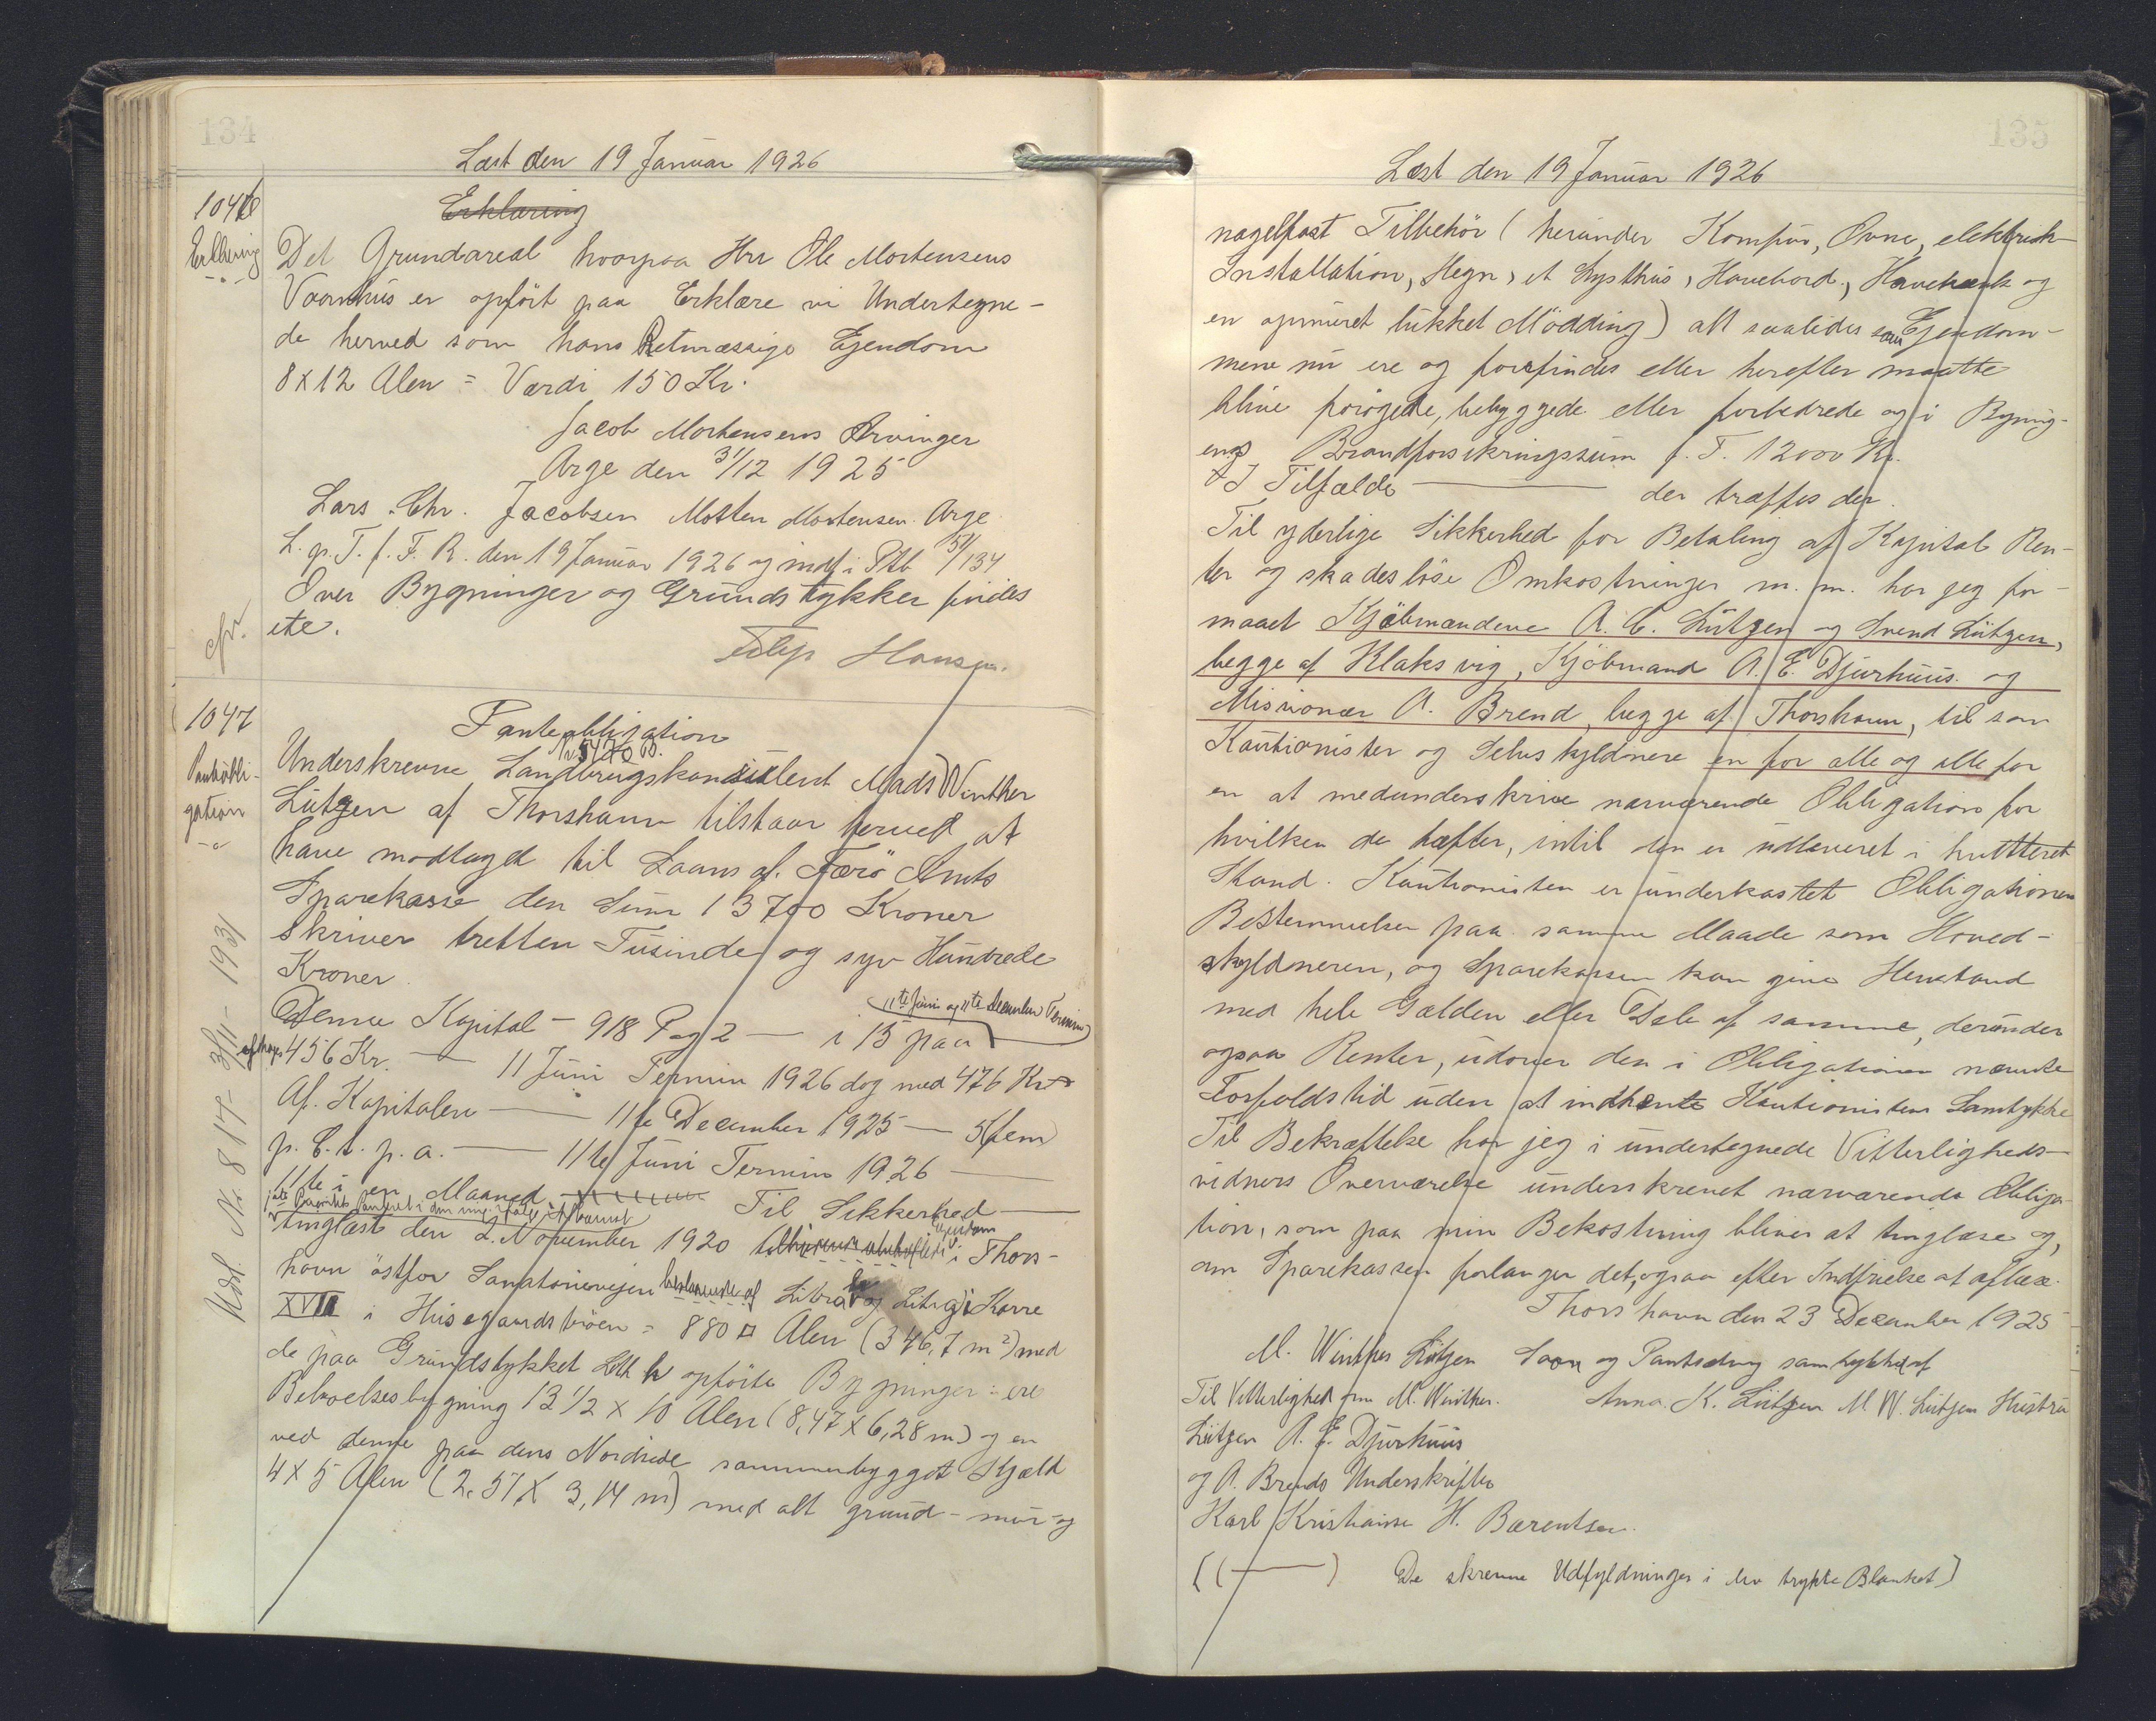 134
Læst den 19 Januar 1926
1046
Erklæring
Erklæring
Det Grundareal hvorpaa Hrr Ole Mortensens
Vaanhus er opført paa Erklære vi Undertegne-
de herved som hans Retmæssige Ejendom
8 x 12 Alen = Værdi 150 Kr.
Jacob Mortensens Arvinger
Arge den 31/12 1925
Lars Chr. Jacobsen Morten Mortensen. Arge
L. p. T. f. F. R. den 19 Januar 1926 og indf i Ptb 51/134
Over Bygninger og Grundstykker findes
ete.
cfr.
Filip Hansen.
1047
Pantobli-
gation
Panteobligation
Nr 5470 B.
Underskrevne Landbrugskonsulent Mads Winther
Lützen af Thorshavn tilstaar herved at
have modtaget til Laans af Færö Amts
Sparekasse den Sum 13700 Kroner
skriver tretten Tusinde og syv Hundrede
Kroner
11te Juni og 11te December Termin
Denne Kapital — 918 P og 2 — i 15 paa
afdrages 456 Kr. — 11 Juni Termin 1926 dog med 476 Kr
Af Kapitalen — 11te December 1925 — 5 (fem)
p. C. t. p. a. — 11te Juni Termin 1926 —
11te i en Maaned Til Sikkerhed —
tinglæst den 2. November 1920 Ejendom i Thors-
havn østfor Sanatorievejen bestaaende af Litra og Litra i Karre
XVII i Husegaardstrøen = 880 □ Alen (346,7 m²) med
de paa Grundstykket opførte Bygninger: ere
Beboelsesbygning 13 1/2 x 10 Alen (8,47 x 6,28 m) og en
ved denne paa dens Nordside sammenbygget Hjeld
4 x 5 Alen (2,51 x 3,14 m) med alt grund- mur- og
Udsl. Nr. 817 - 3/11 - 1931
135
Læst den 19 Januar 1926
nagelfast Tilbehør (herunder Komfur, Ovne, elektrisk
Installation, Hegn, et Lysthus, Havebord, Havebænk og
en opmuret lukket Mödding) alt saaledes som Ejendom-
mene nu ere og forefindes eller herefter maatte
blive forøgede, bebyggede eller forbedrede og i Bygning-
ens Brandforsikringssum f. T. 12000 Kr.
I Tilfælde — der træffes der.
Til yderlige Sikkerhed for Betaling af Kapital Ren-
ter og skadesløse Omkostninger m. m. har jeg for-
maaet Kjøbmændene A. C. Lützen og Svend Lützen,
begge af Klaksvig, Kjøbmand A. E. Djurhuus og
Missionær A. Brend, begge af Thorshavn, til som
Kautionister og Selvskyldnere en for alle og alle for
en at medunderskrive nærværende Obligation for
hvilken de hæfter, intil den er udleveret i kvitteret
Stand. Kautionisten er underkastet Obligationen
Bestemmelser paa samme Maade som Hoved-
skyldneren, og Sparekassen kan give Henstand
med hele Gælden eller Dele af samme, derunder
ogsaa Renter, udover den i Obligationen nævnte
Forfaldstid uden at indhente Kautionisten Samtykke
Til Bekræftelse har jeg i undertegnede Vitterligheds-
vidners Overværelse underskrevet nærværende Obliga-
tion, som paa min Bekostning bliver at tinglæse og,
om Sparekassen forlanger det, ogsaa efter Indfrielse at aflæse.
Thorshavn den 23 December 1925
M. Winther Lützen Laan og Pantsætning samtykkes af
Til Vitterlighed om M. Winther. Anna K. Lützen M. W. Lützen Hustru
Lützen A. E. Djurhuus
og A. Brends Underskrifter
Karl Kristiansen H. Barentsen.
[( — ) De skrevne Udfyldninger i den trykte Blanket]